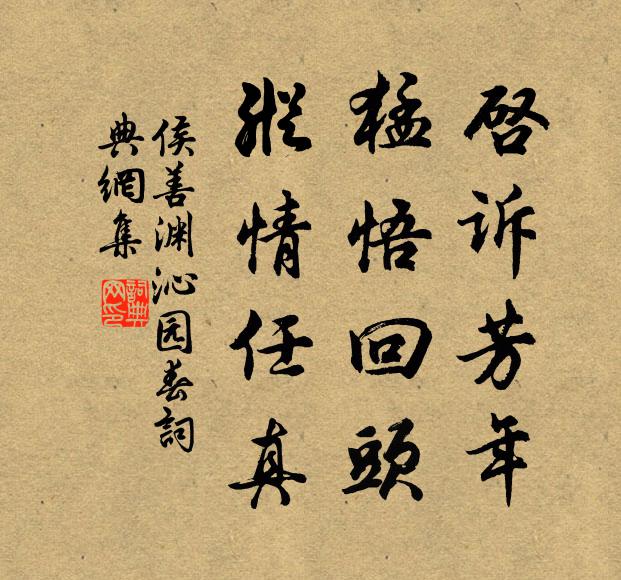 启诉芳年
猛悟回頭
縱情任真
侯善渊沁园春詞
典網集
詞典
网印